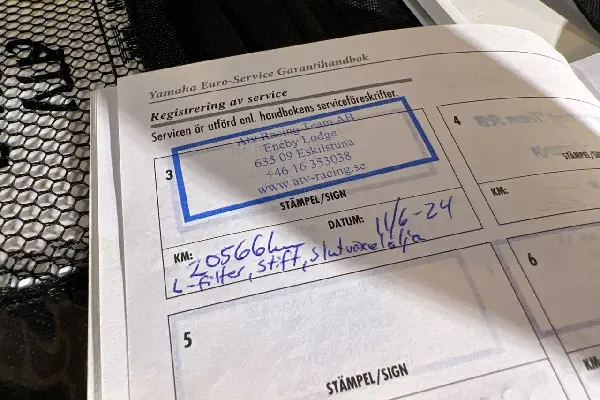 Yamaha Euro-Service Garantihandbok
Registrering av service
Servicen är utförd enl. handbokens serviceföreskrifter.
3
Atv Racing Team AB
Eneby Lodge
635 09 Eskilstuna
+46 16 353038
www.atv-racing.se
STÄMPEL/SIGN
KM: 20566km DATUM: 11/6-24
L-filter, stift, slutväxelolja
4
STÄMPEL/SIGN
KM:
5
STÄMPEL/SIGN
6
KM: